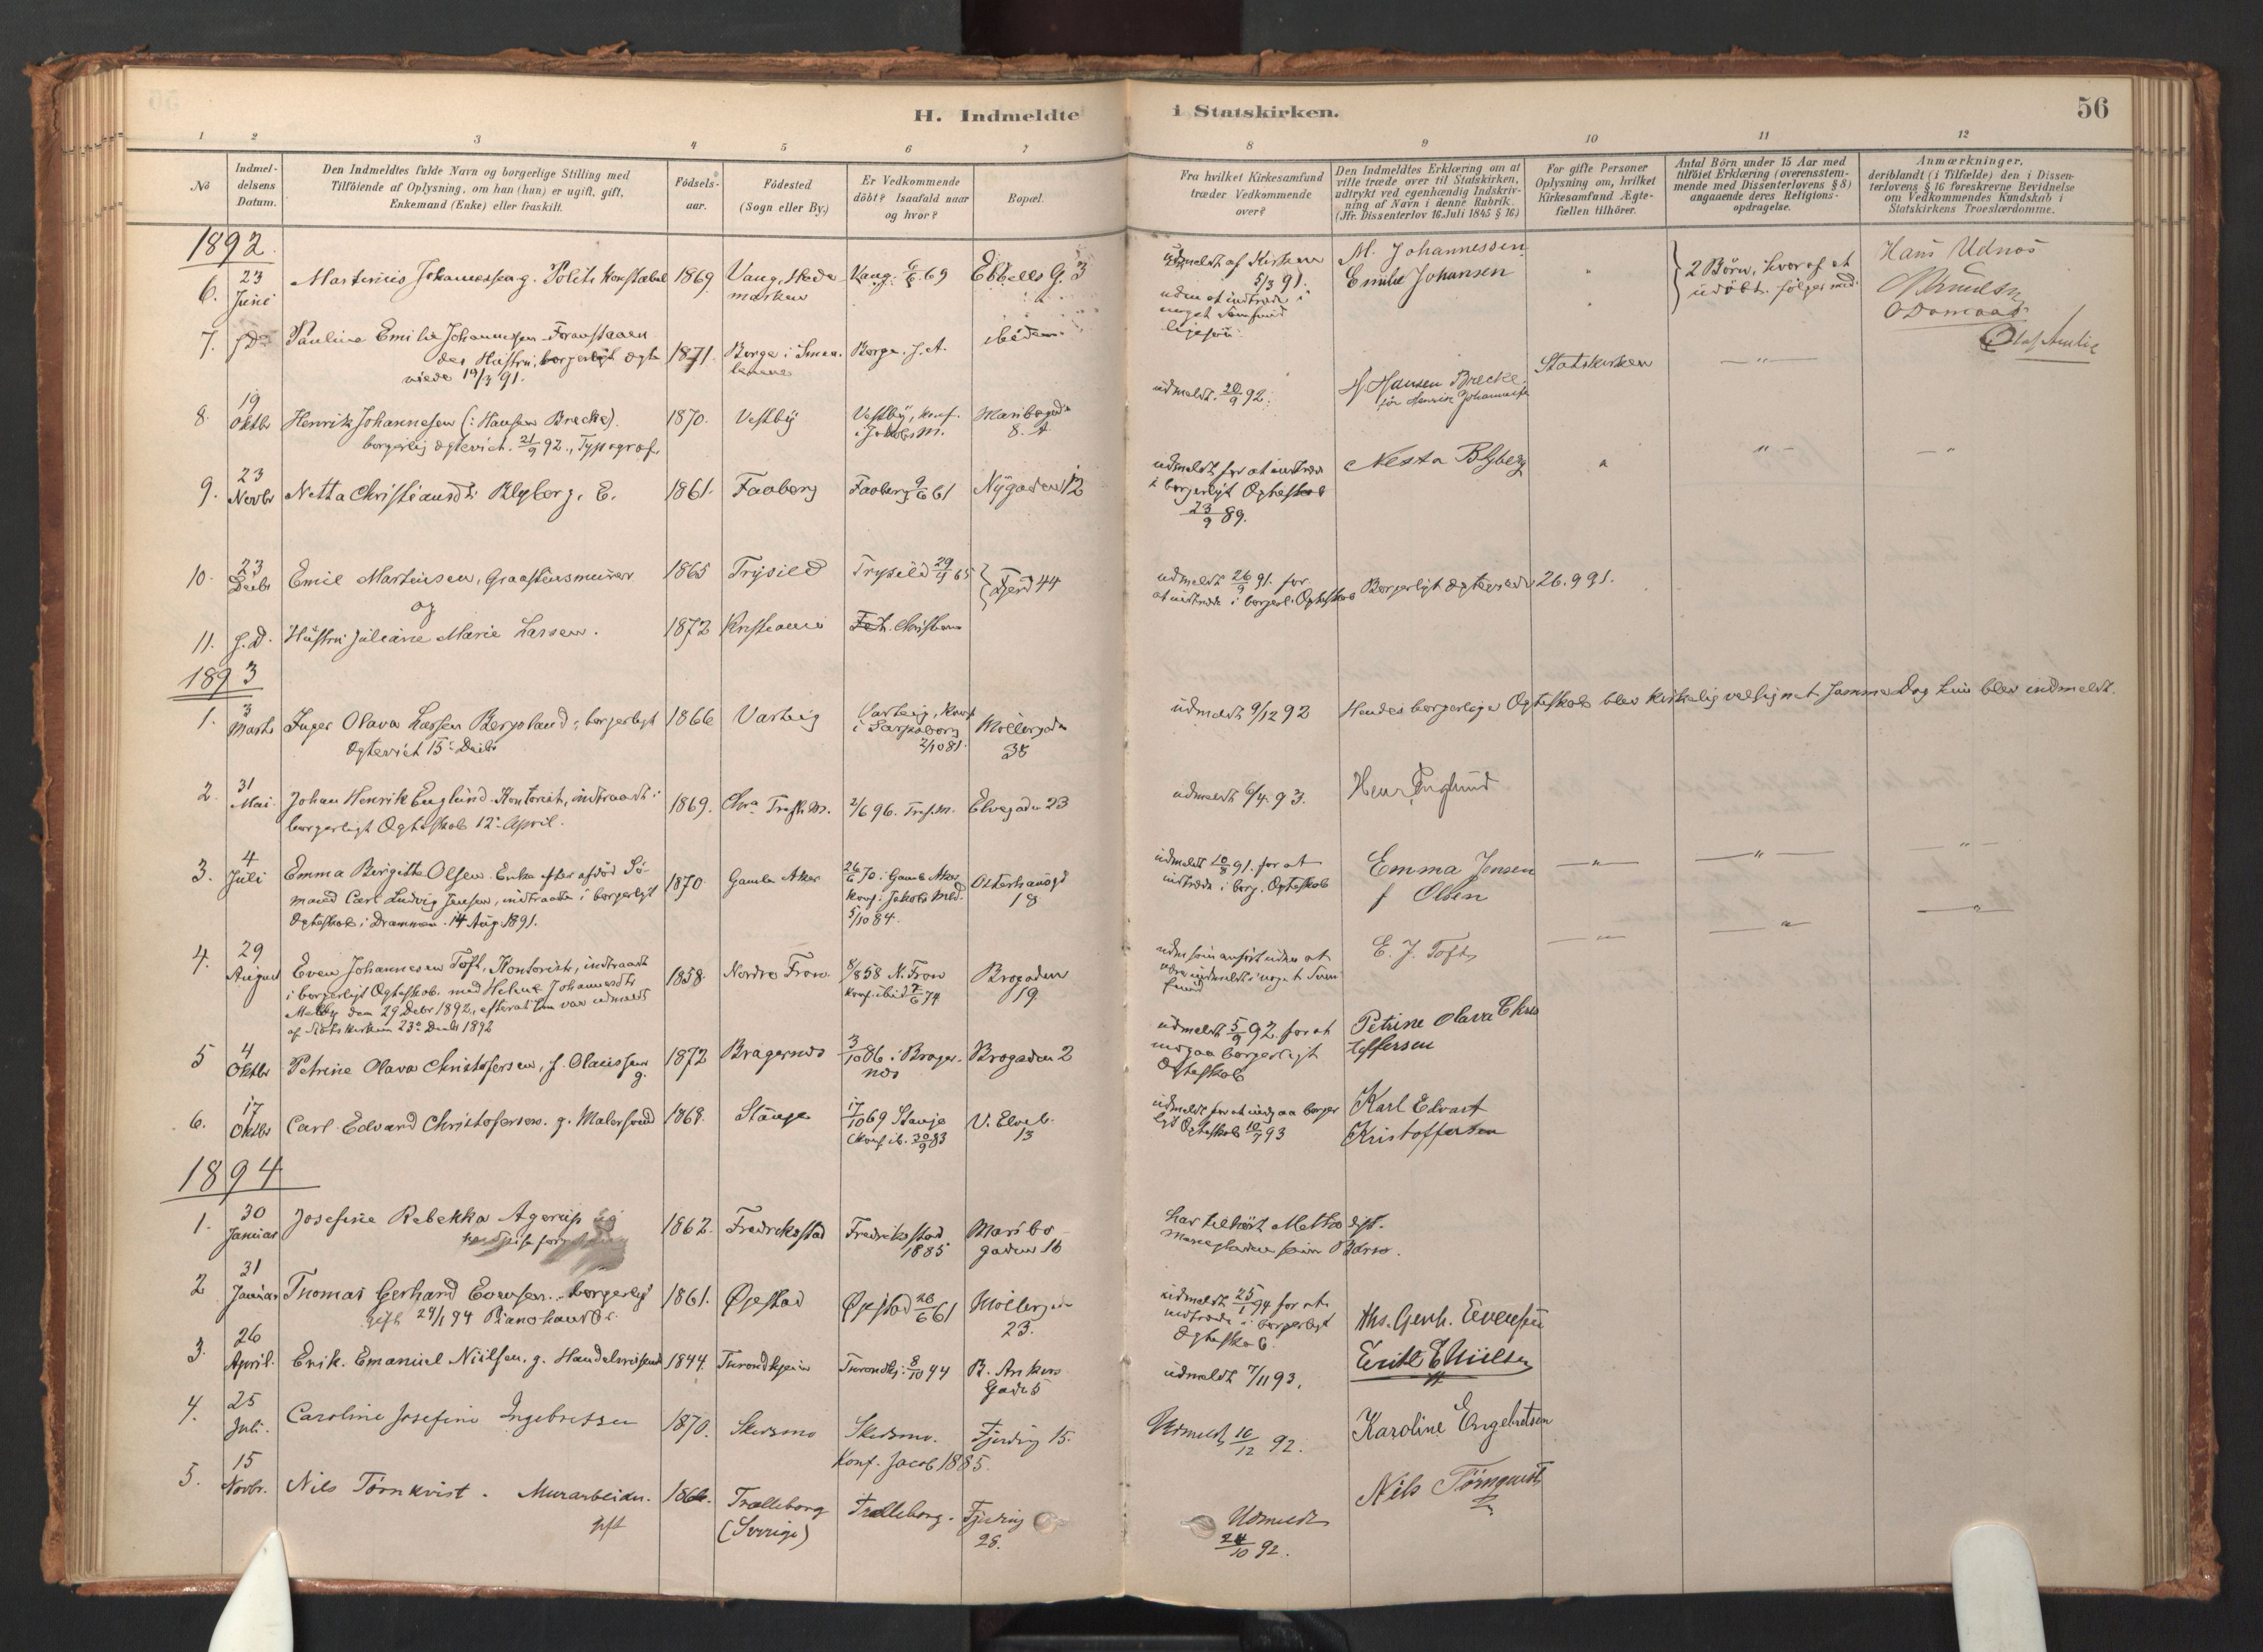 H. Indmeldte i Statskirken.
56
1 2 3 4 5 6 7 8 9 10 11 12
No
Indmel-
delsens
Datum.
Den Indmeldtes fulde Navn og borgerlige Stilling med
Tilföiende af Oplysning, om han (hun) er ugift, gift,
Enkemand (Enke) eller fraskilt.
Födsels-
aar.
Födested
(Sogn eller By.)
Er Vedkommende
döbt? Isaafald naar
og hvor?
Bopæl.
Fra hvilket Kirkesamfund
træder Vedkommende
over?
Den Indmeldtes Erklæring om at
ville træde over til Statskirken,
udtrykt ved egenhændig Indskriv-
ning af Navn i denne Rubrik.
(Jfr. Dissenterlov 16. Juli 1845 § 16)
For gifte Personer
Oplysning om, hvilket
Kirkesamfund Ægte-
fællen tilhörer.
Antal Börn under 15 Aar med
tilföiet Erklæring (overensstem-
mende med Dissenterlovens § 8)
angaaende deres Religions-
opdragelse.
Anmærkninger,
deriblandt (i Tilfælde) den i Dissen-
terlovens § 16 foreskrevne Bevidnelse
om Vedkommendes Kundskab i
Statskirkens Troeslærdomme.
1892
6. 23 Juni
Martinius Johannessen g. Politikonstabel 1869 Vang, Hede-
marken
Vang 69
Ebbells G. 3
udmeldt af Kirken
5/3 91.
uden at indtræde i
noget Samfund
ligesaa
M. Johannessen
Emilie Johansen
2 Börn, hvoraf et
udöbt følger med
Hans Udnæs
7. f D
Pauline Emilie Johannessen Foranstaaen
des Hustru, borgerligt ægte
viede 19/3 91.
1871. Borge i Smaa-
lenene
Borge. f. A. ibidem
8. 19 Oktbr
Henrik Johannesen (: Hansen Brecke).
borgerlig ægteviet 21/9 92., Typograf.
1870. Vestby
Vestby, konf.
i Jakobs M.
Maribogaden
8. A
udmeldt. 20/9 92.
H. Hansen Brecke
før Henrik Johannesen
Statskirken
9. 23 Novbr
Netta Christiansdtr Blyberg, E. 1861. Faaberg Faaberg 9/6 61 Nygaden 12
udmeldt for at indtræde
i borgerligt Ægteskab
23/9 89.
Nesta Blyberg
10. 23 Decbr
Emil Martinsen, Graastensmurer 1865 Trysild Trysild 29/4 65 Fjerd 44
og
udmeldt 26/9 91. for
at indtræde i borgerl. Ægteskab
Borgerligt ægteviede 26.9 91.
11. f. D. Hustru Juliane Marie Larsen. 1872 Kristiania
1893
1. 3 Marts
Inger Olava Larsen Bergsland, borgerligt
ægteviet 15 Decbr
1866 Varteig
Varteig, konf
i Sarpsborg
2/10 81.
Möllergaden
35
udmeldt 9/12 92 Hendes borgerlige Ægteskab blev kirkelig velsignet samme Dag hun blev indmeldt.
2. 31 Mai.
Johan Henrik Englund Kontorist, indtraadt i
borgerligt Ægteskab 12 April.
1869. Chra Trefh. M. 2/6 96. Tref. M. Elvegaden 23
udmeldt 6/4. 93. Henr. Englund
3. 4 Juli
Emma Birgitte Olsen Enke efter afdöd Sö-
mand Carl Ludvig Jensen, indtraadte i borgerligt
Ægteskab i Drammen 14 Aug. 1891.
1870. Gamle Aker
26/6 70 i Gamle Aker
Konf. i Jakobs Md.
5/10 84.
Osterhausgd
18
udmeldt 10/8 91. for at
indtræde i borg. Ægteskab
Emma Jensen
f Olsen
4. 29 August
Even Johannesen Toft, Kontorist, indtraadt
i borgerligt Ægteskab med Helene Johannesdtr
Melby den 29 Decbr 1892, efterat hun var udmeldt
af Statskirken 23 Decbr 1892
1858. Nordre Fron.
8/8 58 N. Fron
Konf. ibid 7/6 74
Brogaden
19
udm. som anført uden at
være indmeldt i noget Sam-
fund
E. J. Toft
5 4 Oktbr
Petrine Olava Christofersen, f. Olaussen
g.
1872 Bragernes
3/10 86 i Brager-
nes
Brogaden 2
udmeldt 5/9 92. for at
indgaa borgerligt
Ægteskab
Petrine Olava Chris
toffersen
6. 17 Oktbr
Carl Edvard Christofersen. g. Malersvend 1868. Stange
17/10 69 Stange
Konf ib. 30/9 83
V. Elveb.
13
udmeldt for at indgaa borger
ligt Ægteskab 10/7 93
Karl Edvart
Kristoffersen
1894
1. 30 Januar
Josefine Rebekka Agerup ug
1862. Fredrikstad
Fredrikstad
1885
Maribo
gaden 16
har tilhört Methodist-
menigheden som Barn.
2 31 Januar
Thomas Gerhard Evensen. borgerlig
gift 29/1 94 Pianohandler.
1861. Øjestad Øjestad 26/6 61
Möllergaden
23.
udmeldt 25/1 94 for at
indtræde i borgerligt
Ægteskab.
Ths. Gerh. Evensen
3. 26 April.
Erik. Emanuel Nielsen. g. Handelsreisende 1844. Trondhjem Trondhj. 8/10 44
B. Ankers
Gade 5
udmeldt 7/11 93. Erik E Nielsen
4. 25 Juli.
Caroline Josefine Ingebretsen 1870. Skedsmo Skedsmo.
Konf. Jacob 1885.
Fjerding 15.
Udmeldt 16/12 92. Karoline Engebretsen
5. 15 Novbr.
Nils Törnkvist. Murarbeider.
gift
1866. Trælleborg
(Sverige)
Trælleborg. Fjerding
28.
Udmeldt
24/10 92.
Nils Törnquist